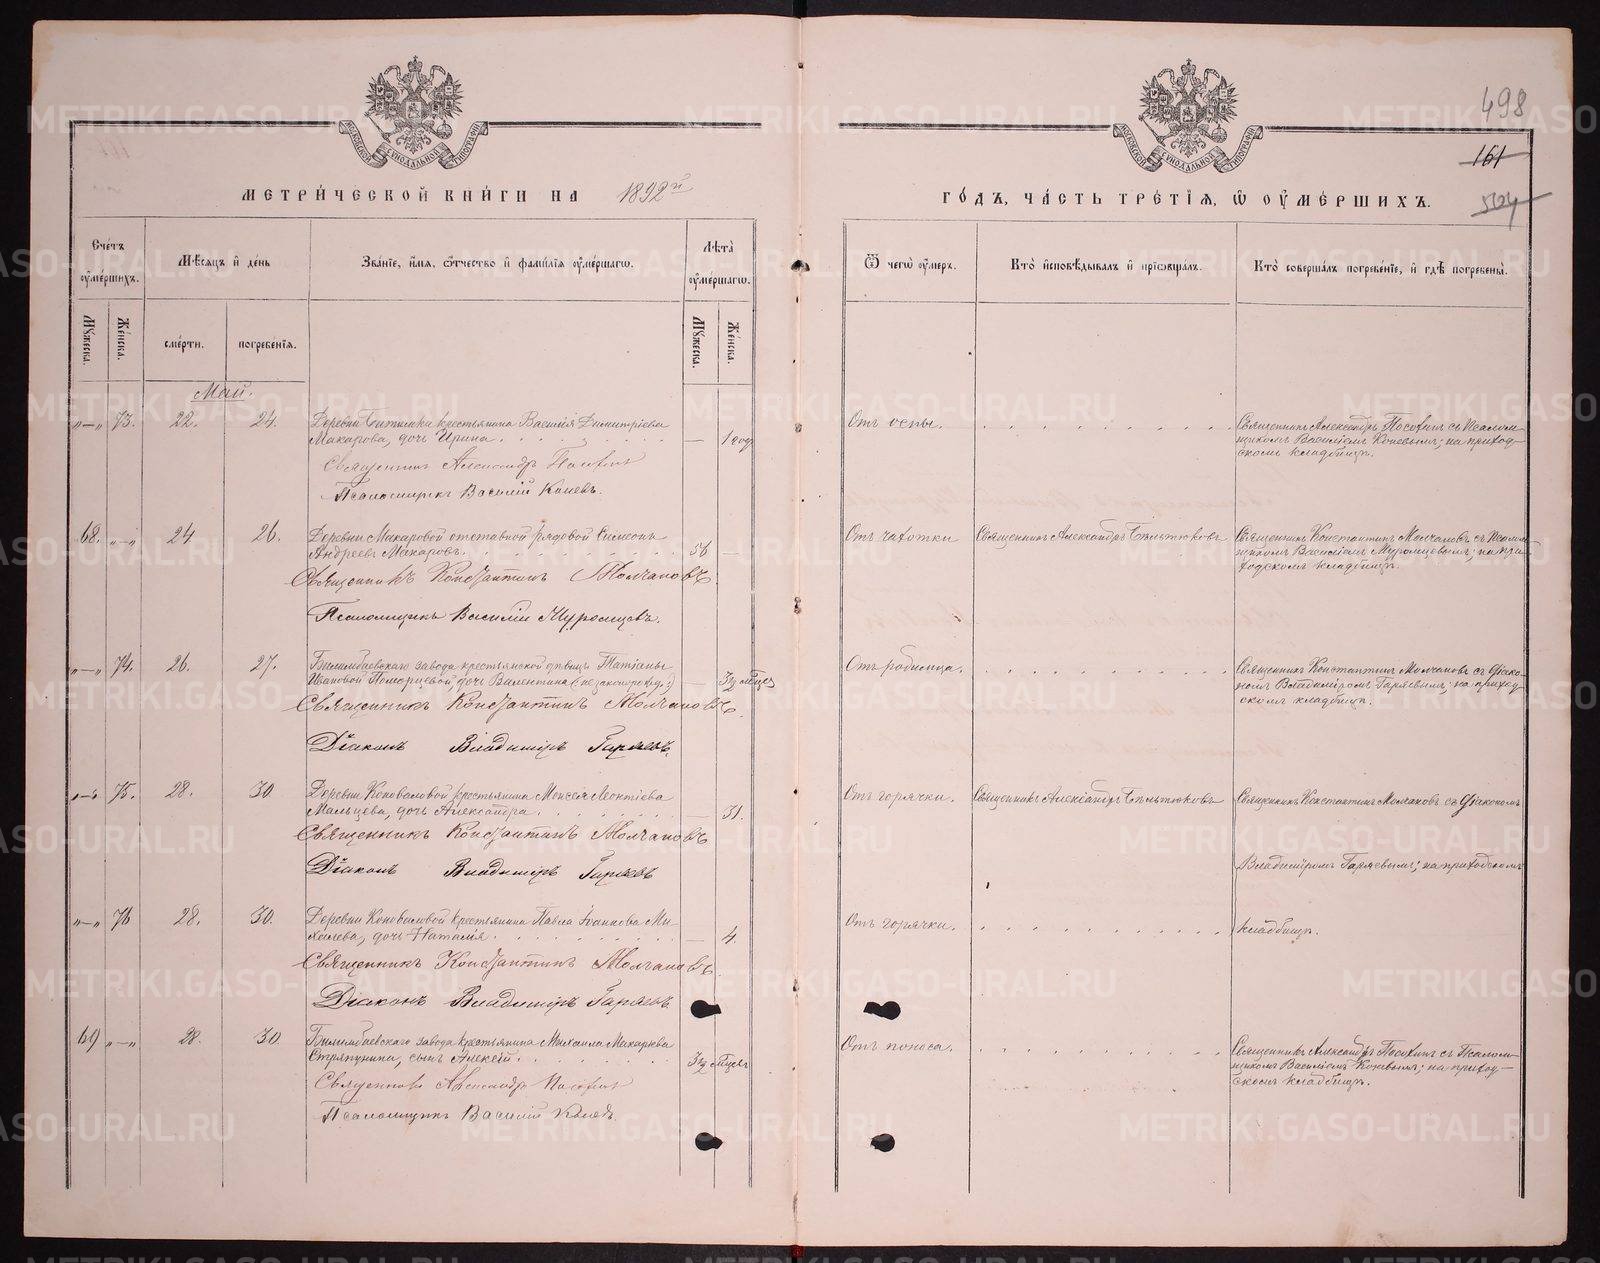 498
161
504
МОСКОВСКОЙ СѴНОДАЛЬНОЙ ТИПОГРАФІИ
МОСКОВСКОЙ СѴНОДАЛЬНОЙ ТИПОГРАФІИ
МЕТРИ́ЧЕСКОЙ КНИ́ГИ НА 1892й
ГО́ДЪ, ЧА́СТЬ ТРЕ́ТІЯ, Ѡ ОУМЕ́РШИХЪ.
Сче́тъ оуме́ршихъ.
Мѣ́сяцъ и де́нь
Зва́ніе, и́мя, о́тчество и фами́лія оуме́ршагѡ.
Лѣта̀ оуме́ршагѡ.
Ѿ чегѡ̀ оу́меръ.
Кто̀ исповѣ́дывалъ и приѡбща́лъ.
Кто̀ соверша́лъ погребе́ніе, и гдѣ̀ погребены̀.
Му́жеска.
Же́нска.
сме́рти.
погребе́нія.
Му́жеска.
Же́нска.
Май.
„—„ 73. 22. 24. Деревни Битимки крестьянина Василія Димитріева
Макарова, дочь Ирина. — 1 год
Священникъ Александръ
Псаломщикъ Василій Коневъ.
Отъ оспы.
Священникъ Александръ съ Псалом-
щикомъ Василіемъ Коневымъ; на приход-
скомъ кладбищѣ.
68. „—„ 24 26. Деревни Макаровой отставной рядовой Симеонъ
Андреевъ Макаровъ. 56 —
Священникъ Константинъ Молчановъ.
Псаломщикъ Василій Муромцевъ.
Отъ чахотки
Священникъ Александръ Бѣльтюковъ
Священникъ Константинъ Молчановъ съ Псалом-
щикомъ Василіемъ Муромцевымъ; на при-
ходскомъ кладбищѣ.
„—„ 74. 26. 27. Билимбаевскаго завода крестьянской дѣвицы Татіаны
Ивановой Поморцевой дочь Валентина (незаконорожд.) — 3½ мѣсяц
Священникъ Константинъ Молчановъ.
Діаконъ Владиміръ Гаряевъ.
Отъ родимца.
Священникъ Константинъ Молчановъ съ Діако-
номъ Владиміромъ Гаряевымъ; на приход-
скомъ кладбищѣ.
„—„ 75. 28. 30. Деревни Коноваловой крестьянина Моисея Леонтіева
Мальцева, дочь Александра. — 31.
Священникъ Константинъ Молчановъ
Діаконъ Владиміръ Гаряевъ
Отъ горячки.
Священникъ Александръ Бѣльтюковъ
Священникъ Константинъ Молчановъ съ Діакономъ
Владиміромъ Гаряевымъ; на приходскомъ
„—„ 76 28. 30. Деревни Коноваловой крестьянина Павла Іоаннова Ми-
хелева, дочь Наталія. — 4.
Священникъ Константинъ Молчановъ.
Діаконъ Владиміръ Гаряевъ
Отъ горячки.
кладбищѣ.
69 „—„ 28. 30. Билимбаевскаго завода крестьянина Михаила Макарьева
Стряпунина, сынъ Алексій. 3½ мѣсяц
Священникъ Александръ
Псаломщикъ Василій Коневъ
Отъ поноса.
Священникъ Александръ съ Псалом-
щикомъ Василіемъ Коневымъ; на приход-
скомъ кладбищѣ.
METRIKI.GASO-URAL.RU